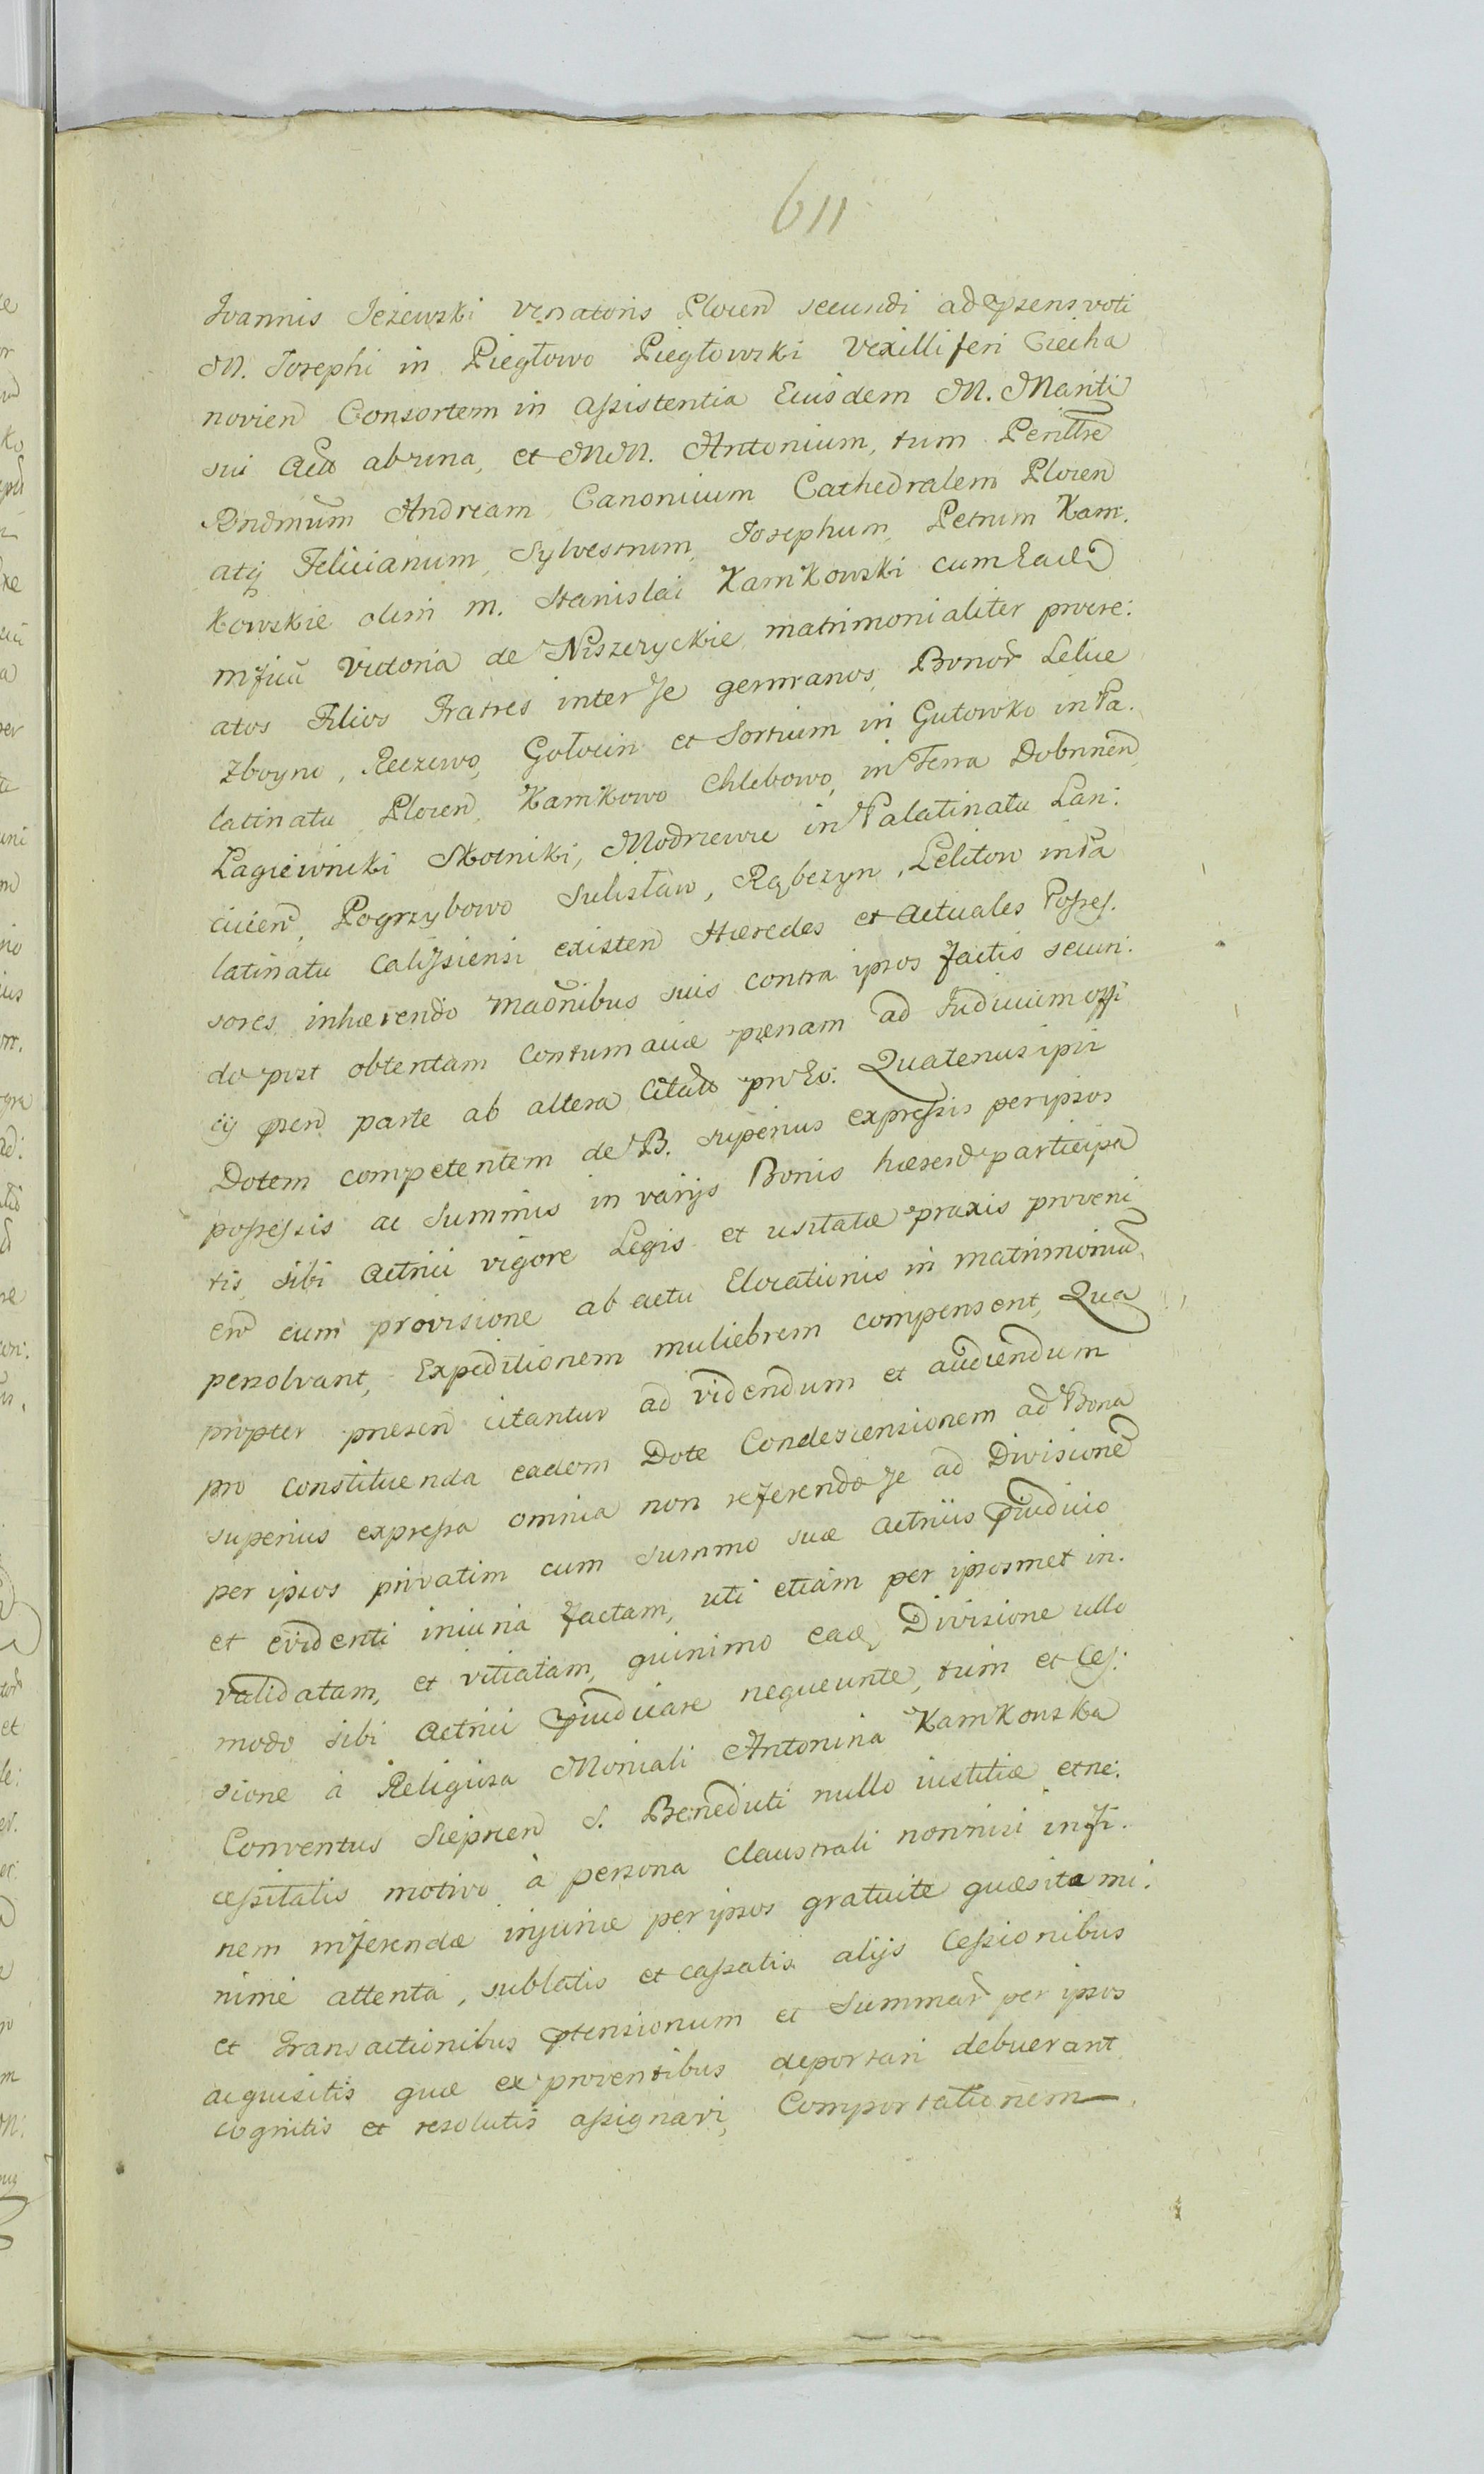 611
Ioannis Jeżewski venatoris Plocen secundi ad psens voti
M. Josephi in Piegłowo Piegłowski Vexilliferi Ciecha
novien Consortem in assistentia Eiusdem M. Mariti
sui Act ab una, et MM. Antonium, tum Perillre
Rndmum Andream Canonicum Cathedralem Plocen
atq Felicianum, Sylvestrum, Josephum, Petrum Kam:
kowskie olim m. Stanislai Kamkowski cum eade
mficu Victoria de Niszczyckie matrimonialiter procre:
atos Filios Fratres inter se germanos, Bonor Lelice
Zboyno, Reczewo, Gołocin et Sortium in Gutowko in Pa:
latinatu Plocen, Kamkowo Chlebowo, in Terra Dobrinen,
Łagiewniki Skotniki, Modrzewie in Palatinatu Lan:
cicien, Pogrzybowo Sulisław, Rąbczyn, Leliton in Pa
latinatu Calissiensi existen Hæredes et Actuales Posses:
sores, inhærendo maonibus suis contra ipsos factis secun:
do post obtentam Contumaciæ pœnam ad Iudicium offi
cij psen parte ab altera Citat pro Eo: Quatenus ipsi
Dotem competentem de B. superius expressis per ipsos
possessis ac summis in varijs Bonis hæren participa
tis, sibi Actrici vigore Legis et usitatæ praxis proveni
en cum provisione ab actu Elocationis in matrimoniu
persolvant, Expeditionem muliebrem compensent, Qua
propter presen citantur ad videndum et audiendum
pro constituenda eadem Dote Condescensionem ad Bona
superius expressa omnia non referendo se ad Divisione
per ipsos privatim cum summo suæ Actricis pjudicio
et evidenti iniuria factam, uti etiam per ipsosmet in:
validatam, et vitiatam, quinimo eade Divisione ullo
modo sibi Actrici pjudicare nequeunte, tum et Ces:
sione à Religiosa Moniali Antonina Kamkowska
Conventus Sieprcen S. Benedicti nullo iustitiæ et ne:
cessitatis motivo à persona claustrali nonnisi in fi:
nem inferendæ injuriæ per ipsos gratuite quæsita mi:
nime attenta, sublatis et cassatis alijs Cessionibus
et Transactionibus ptensionum et Summar per ipsos
acquisitis quæ ex proventibus deportari debuerant
cognitis et resolutis assignari, Comportationem